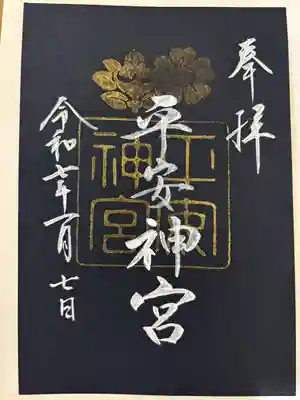 奉拝
平安神宮
令和七年一月七日
平安
神宮